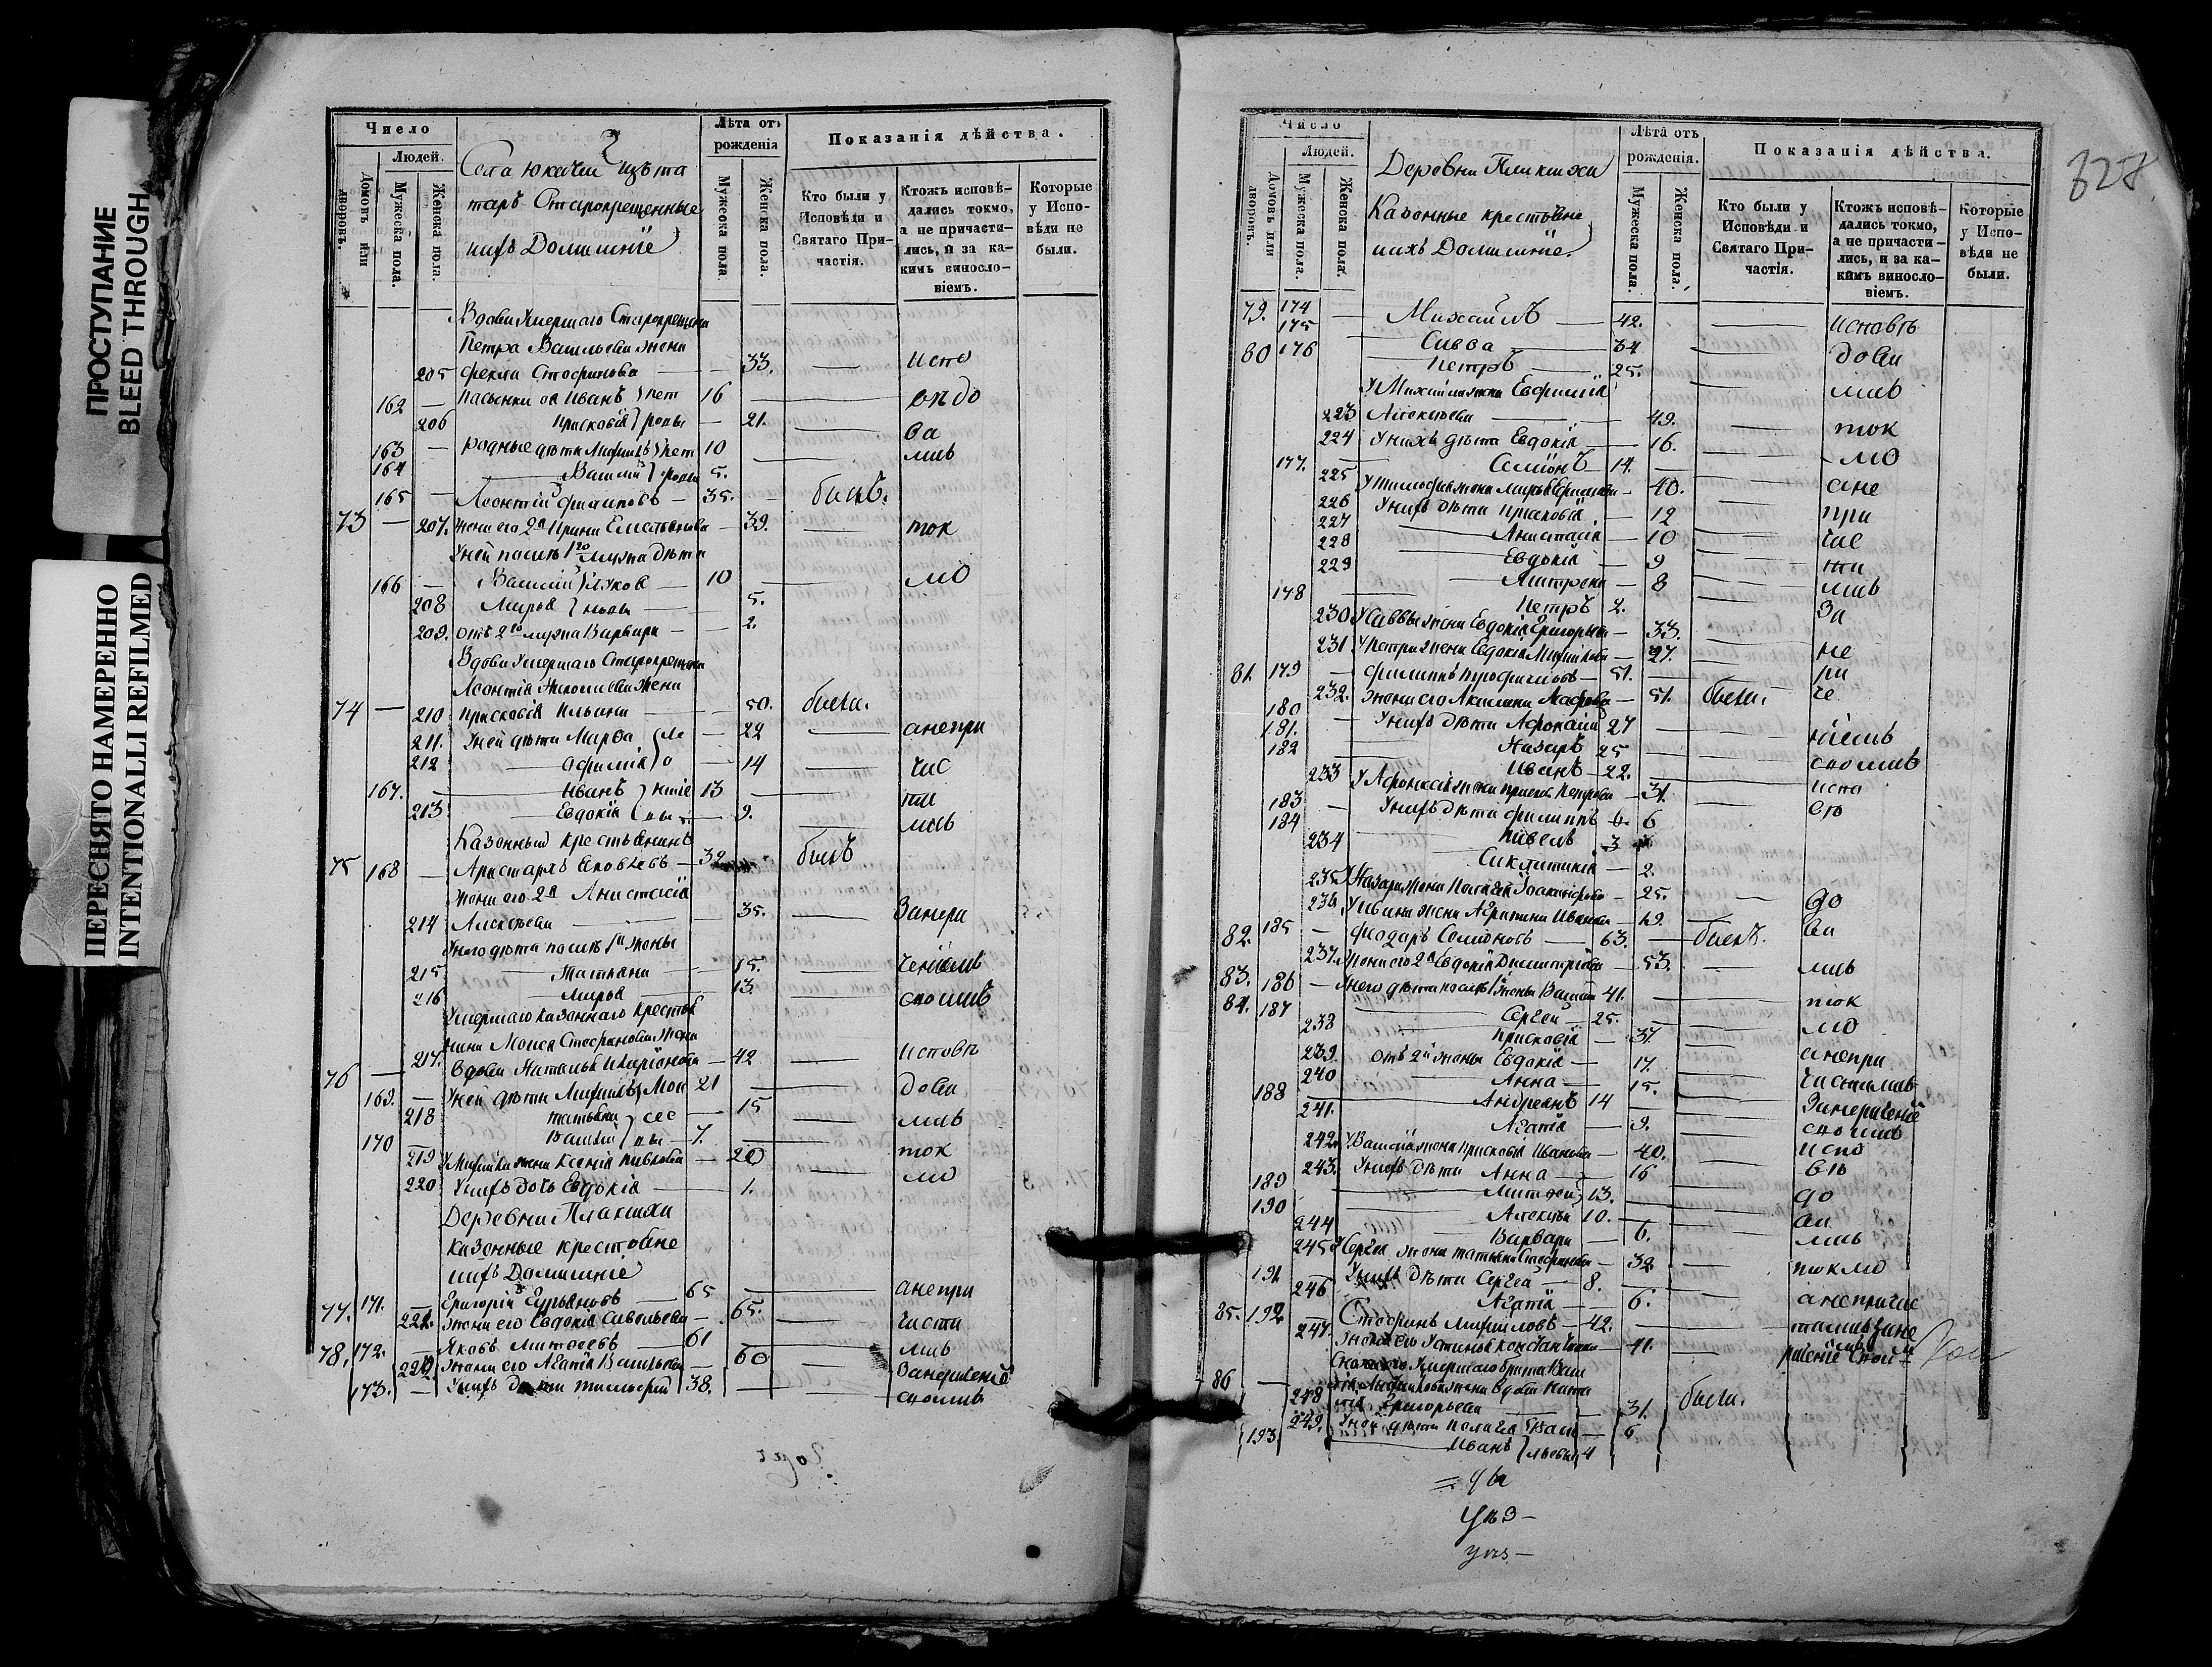 ПРОСТУПАНИЕ
BLEED THROUGH
ПЕРЕСНЯТО НАМЕРЕННО
INTENTIONALLI REFILMED
Число
Людей.
Домовъ или дворовъ.
Мужеска пола.
Женска пола.
Села
Старокрещенные
ихъ Домашніе
Лѣта отъ рожденія
Мужеска пола
Женска пола.
Показанія дѣйства.
Кто были у Исповѣди и Святаго Причастія.
Ктожъ исповѣдались токмо, а не причастились, и за какимъ винословіемъ.
Которые у Исповѣди не были.
Вдова умершаго Старокрещена
Петра Васильева жена
205 Фекла Стефанова — 33. — испо
162 — пасынки ея Иванъ Пет 16 — вѣдо
206 Прасковія ровы — 21. — ва
163 — родные дѣти Михаилъ Пет 10 — лись
164 Василій ровы 5.
165 — Леонтій Филиповъ — 35. — былъ.
73 — 207. Жена его 2я Ирина — 39. — ток
У ней послѣ 1го мужа дѣти
166 — Василій — 10 — мо
208 Марья — 5.
209. отъ 2го мужа Варвара — 2.
Вдова умершаго Старокрещена
Леонтія Николаева жена
74 — 210 Прасковія Ильина — 50. была.
211. У ней дѣти Марфа Ле — 22 — анепри
212 — Афимія о — 14 — час
167. — Иванъ нтіе 13 — ти
213 Евдокія вы — 9. — лись
Казенный крестьянинъ
75 168 — Аристархъ Яковлевъ — 32 былъ
Жена его 2я Анастасія
214 Алексѣева — 35. — Занера
У него дѣти послѣ 1й жены
215 — Татьяна — 15. — ченіемъ
216 — Марья — 13. — своимъ
Умершаго казеннаго крестья
нина Моисея Стефанова жена
76 — 217. вдова Наталья Иларіонова — 42 — исповѣ
169. — У ней дѣти Михаилъ Мои 21 — дова
218 Татьяна сее — 15 — лись
170 Василій вы — 7. — ток
219 У Михаила жена Ксенія Павлова — 20 — мо
220 У нихъ дочь Евдокія — 1.
Деревни Плакиха
казенные крестьяне
ихъ Домашніе
77. 171. — Григорій Гурьяновъ — 65 — анепри
221. Жена его Евдокія Савельева — 65. — части
78. 172. — Яковъ Матвеевъ — 61 — лись
222. Жена его Агафія Васильева — 60 — Занераченіе
173. — У нихъ дѣти Тимофей 38. — своимъ
Число
Людей.
Домовъ или дворовъ.
Мужеска пола.
Женска пола.
Деревни Плакиха
Казенные крестьяне
ихъ Домашніе
Лѣта отъ рожденія.
Мужеска пола.
Женска пола.
Показанія дѣйства.
Кто были у Исповѣди и Святаго Причастія.
Ктожъ исповѣдались токмо, а не причастились, и за какимъ винословіемъ.
Которые у Исповѣди не были.
328
79. 174 — Михаилъ — 42. — исповѣ
175 Савва — 34 — дова
80 176 Петръ — 25. — лись
У Михаила жена Евфимія
223 Алексѣева — 49. — ток
224 У нихъ дѣти Евдокія — 16. — мо
177. Семіонъ — 14. — ане
225 У Тимофея жена Марья — 40. — при
226 У нихъ дѣти Прасковія — 12 — час
227 — Анастасія — 10 — ти
228 — Евдокія — 9 — лись
229 — Матрена — 8 — За
178 — Петръ 2.
230 У Саввы жена Евдокія Григорьева — 33. — не
231 У Петра жена Евдокія Михайлова — 27. — ра
81. 179 — Филиппъ Трофимовъ — 51. — че
232. Жена его Акилина — 51. была.
180 — У нихъ дѣти Афонасій 27 — ніемъ
181. — Назаръ 25 — своимъ
182 Иванъ — 22. — испо
233 У Афонасія жена Петрова — 31. — вѣ
183 — У нихъ дѣти Филиппъ 6
184 Павелъ 3
234 Сиклитикія — 2.
235. У Назара жена — 25. — до
236. У Ивана жена Агрипина Иванова — 19. — ва
82. 185 — Федоръ Семіоновъ — 63. — былъ.
237. Жена его 2я Евдокія Димитріева — 53. — лись
83. 186 — У него дѣти послѣ 1й жены Василій 41. — ток
84. 187 — Сергей 25. — мо
238 Прасковія — 37. — анепри
239. отъ 2й жены Евдокія — 17. — частились
240 Анна — 15. — Занераченіе
188 — Андреянъ 14 — своимъ
241. Агафія — 9. — испо
242. У Василія жена Прасковія Иванова — 40. — вѣ
243. У нихъ дѣти Анна — 16 — до
189 — Матвей 13. — ва
190 — Алексѣй 10. — лись
244 Варвара — 6.
245 У Сергея жена Татьяна Стефанова — 32 — токмо
191 — У нихъ дѣти Сергей — 8.
246 Агафія — 6. — анепричас
85. 192 — Стефанъ Михайловъ — 42. — тились Зане
247. Жена его Устинья Константинова — 41. — раченіемъ своим
умершаго брата Васи
86 — Михайлова жена вдова Ната
248 лія Григорьева — 31. была.
249. У ней дѣти Пелагея Васи — 6
193 — Иванъ льевы 4